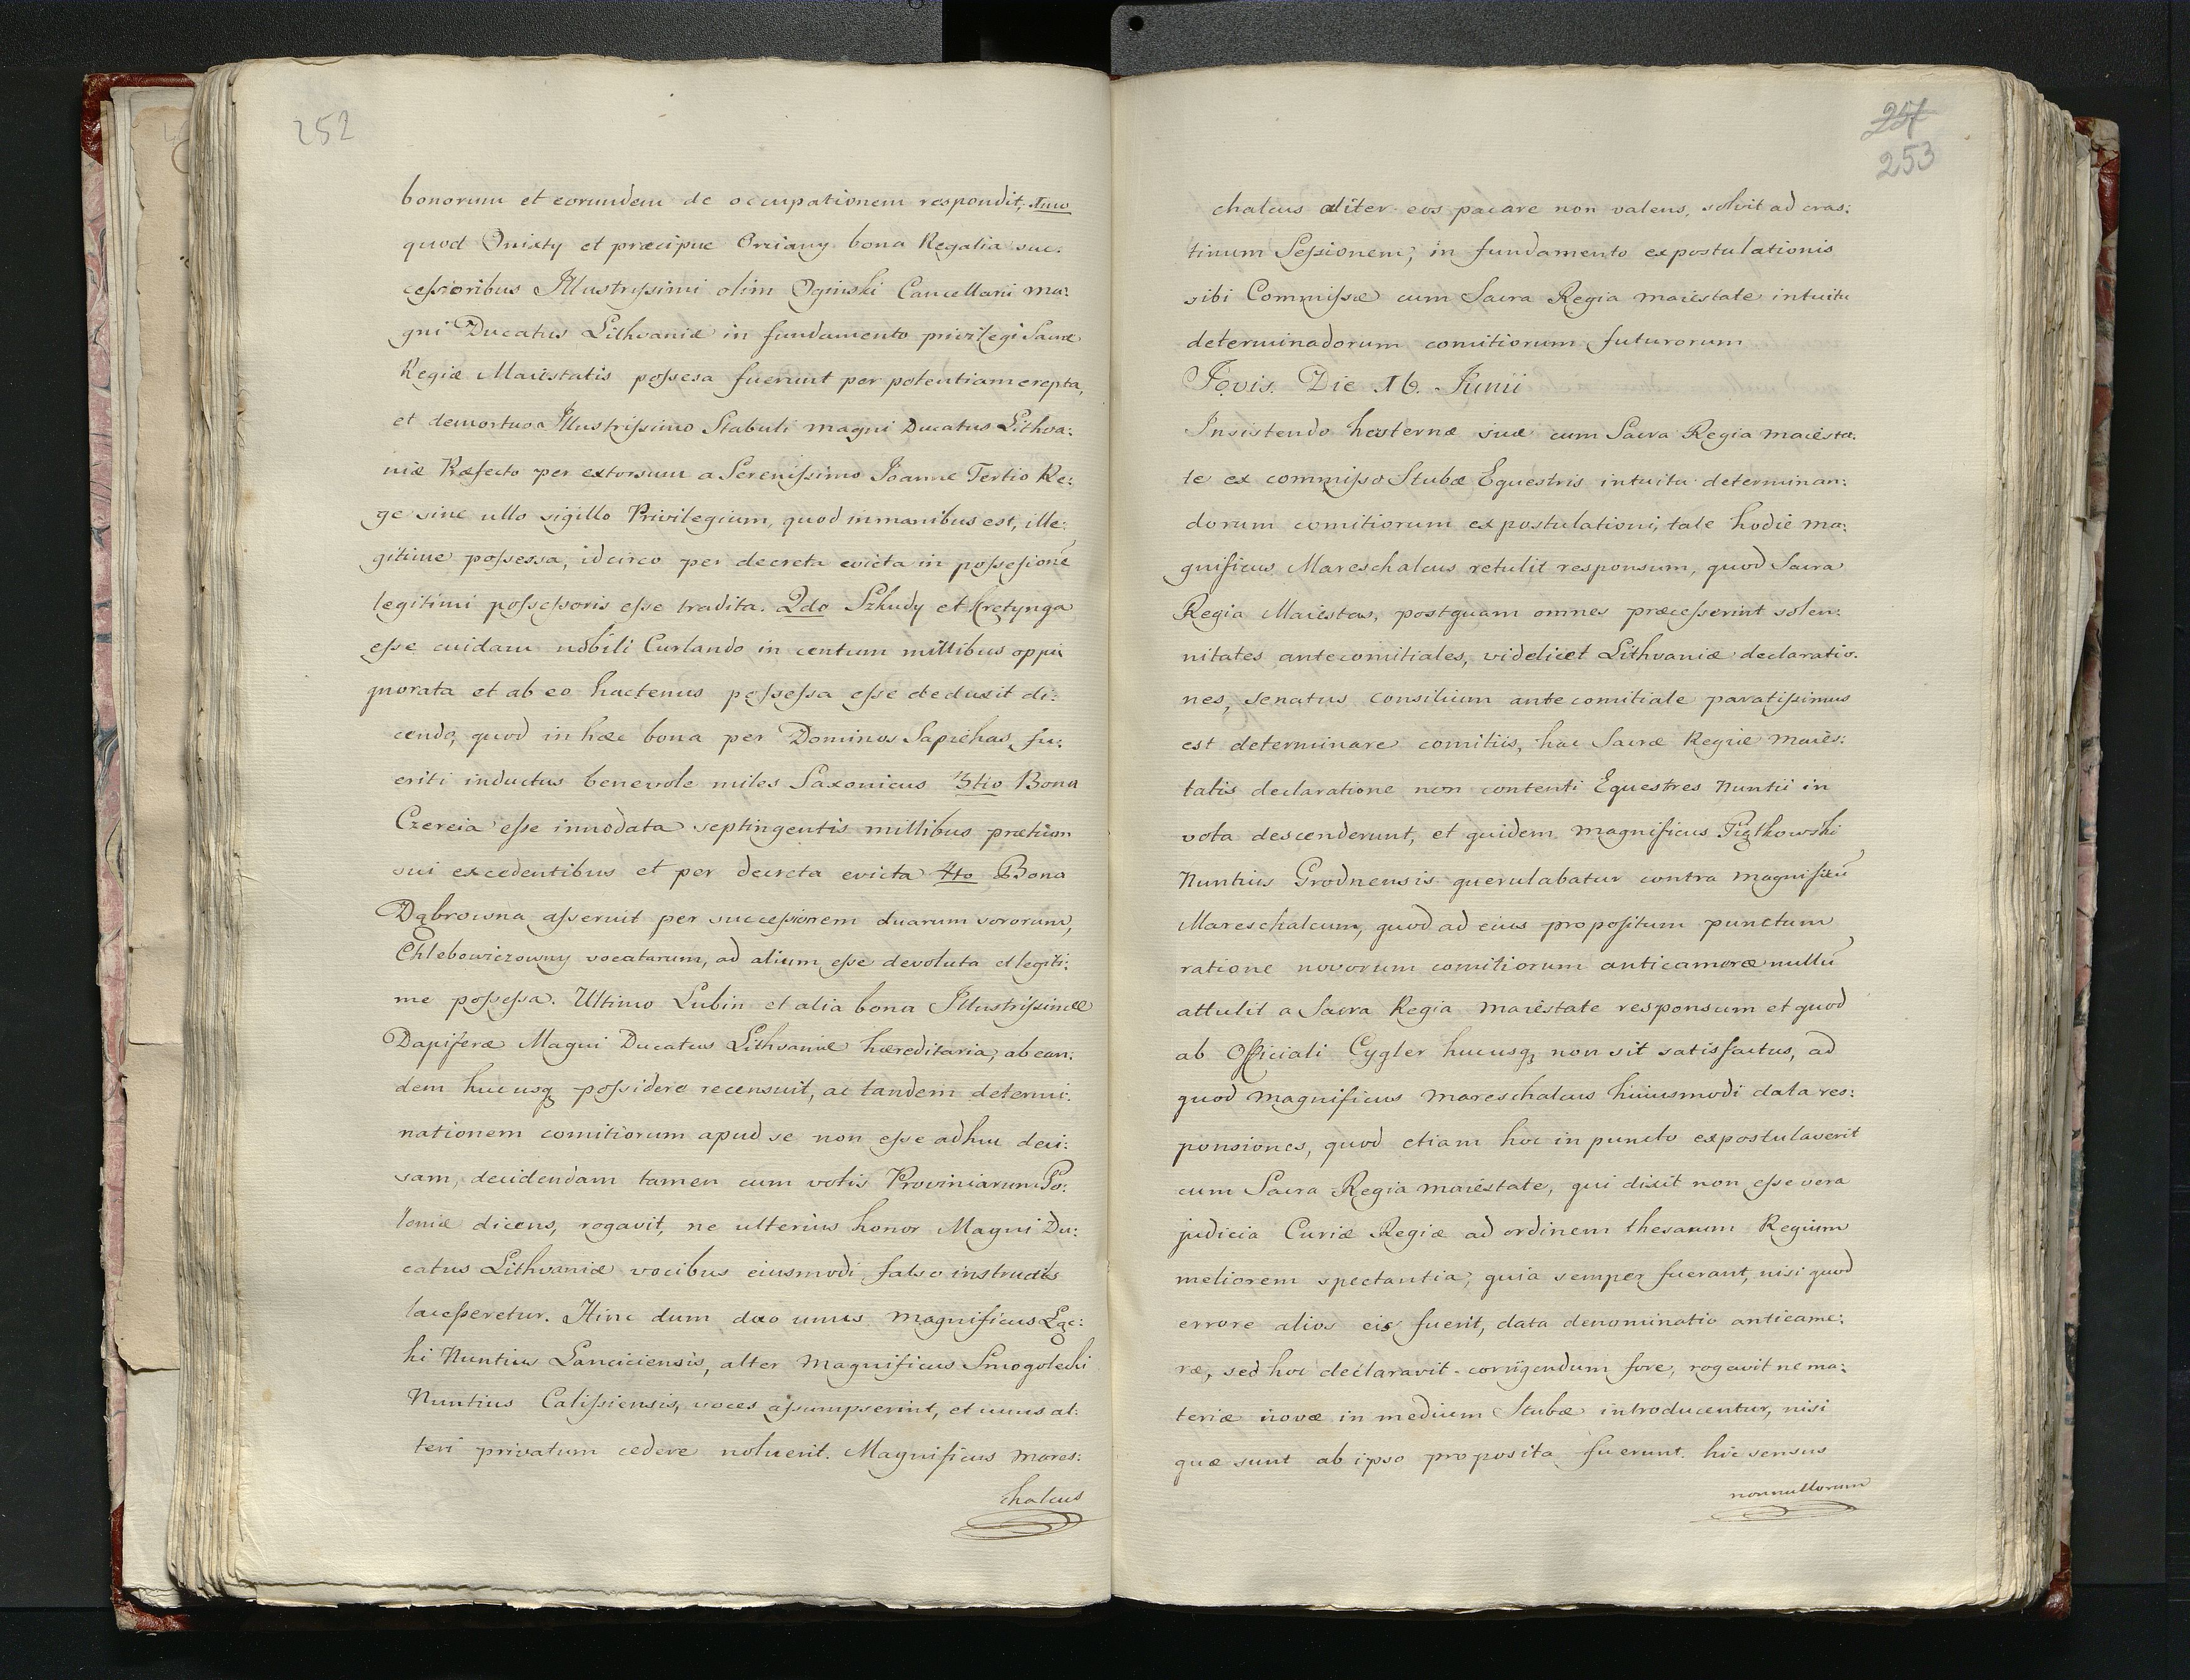 252
bonorum et eorundem de occupationem respondit, Imo
quod Onixty et præcipue Orziany bona Regalia suc:
ceſsioribus Illustriſsimi olim Oginski Cancellarii ma:
gni Ducatus Lithvaniæ in fundamento privilegi Sacræ
Regiæ Maiestatis poſsesa fuerunt per potentiam erepta,
et demortuo Illustriſsimo Stabuli magni Ducatus Lithva:
niæ Præfecto per extorsum a Sereniſsimo Joanne Tertio Re:
ge sine ullo sigillo Privilegium, quod in manibus est, ille:
gitime poſsessa, idcirco per decreta evicta in poſseſsionē
legitimi poſseſsoris eſse tradita. 2do Szkudy et Kretynga
eſse cuidam nobili Curlando in centum millibus oppi
gnorata et ab eo hactenus poſseſsa eſse deduxit di:
cendo, quod in hæc bona per Dominos Sapiehas fu:
eriti inductus benevole miles Saxonicus 3tio Bona
Czereia eſse innodata septingentis millibus prætium
sui excedentibus et per decreta evicta 4to Bona
Dąbrowna aſseruit per succeſsionem duarum sororum,
Chlebowiczowny vocatarum, ad alium eſse devoluta et legiti:
me poſseſsa. Ultimo Lubin et alia bona Illustriſsimæ
Dapiferæ Magni Ducatus Lithvaniæ hæreditaria, ab ean:
dem hucusq poſsidere recensuit, ac tandem determi:
nationem comitiorum apud se non eſse adhuc deci:
sam, decidendam tamen cum votis Provinciarum Po:
loniæ dicens, rogavit, ne ulterius honor Magni Du:
catus Lithvaniæ vocibus eiusmodi falso instructis
laceſseretur. Hinc dum duo unus Magnificus Łąc:
ki Nuntius Lanciciensis, alter Magnificus Smogolecki
Nuntius Caliſsiensis, voces aſsumpserint, et unus al:
teri privatum cedere noluerit. Magnificus Mares:
chalcus
251
253
chalcus aliter eos pacare non valens, solvit ad cras:
tinum Seſsionem, in fundamento expostulationis
sibi Commiſsæ cum Sacra Regia maiestate intuitu
determinadorum comitiorum futurorum
Jovis. Die 16. Junii
Insistendo hesternæ suæ cum Sacra Regia maiesta:
te ex commiſso Stubæ Equestris intuitu determinan:
dorum comitiorum expostulationi, tale hodie ma:
gnificus Mareschalcus retulit responsum, quod Sacra
Regia Maiestas, postquam omnes præceſserint solen:
nitates antecomitiales, videlicet Lithvaniæ declaratio:
nes, senatus consilium ante comitiale paratiſsimus
est determinare comitiis, hac Sacræ Regiæ maies:
tatis declaratione non contenti Equestres Nuntii in
vota descenderunt, et quidem magnificus Piątkowski
Nuntius Grodnensis querulabatur contra magnificū
Mareschalcum, quod ad eius propoſitum punctum
ratione novorum comitiorum anticameræ nullū
attulit a Sacra Regia maiestate responsum et quod
ab Officiali Cygler hucusq non sit satisfactus, ad
quod Magnificus Mareschalcus huiusmodi data res:
ponsiones, quod etiam hoc in puncto expostulaverit
cum Sacra Regia maiestate, qui dixit non eſse vera
judicia Curiæ Regiæ ad ordinem thesaurum Regium
meliorem spectantia, quia semper fuerant, nisi quod
errore alios eis fuerit, data denominatio anticame:
ræ, sed hoc declaravit corrigendum fore, rogavit ne ma:
teriæ novæ in medium Stubæ introducentur, nisi
quæ sunt ab ipso proposita fuerunt. hic sensus
nonnullorum